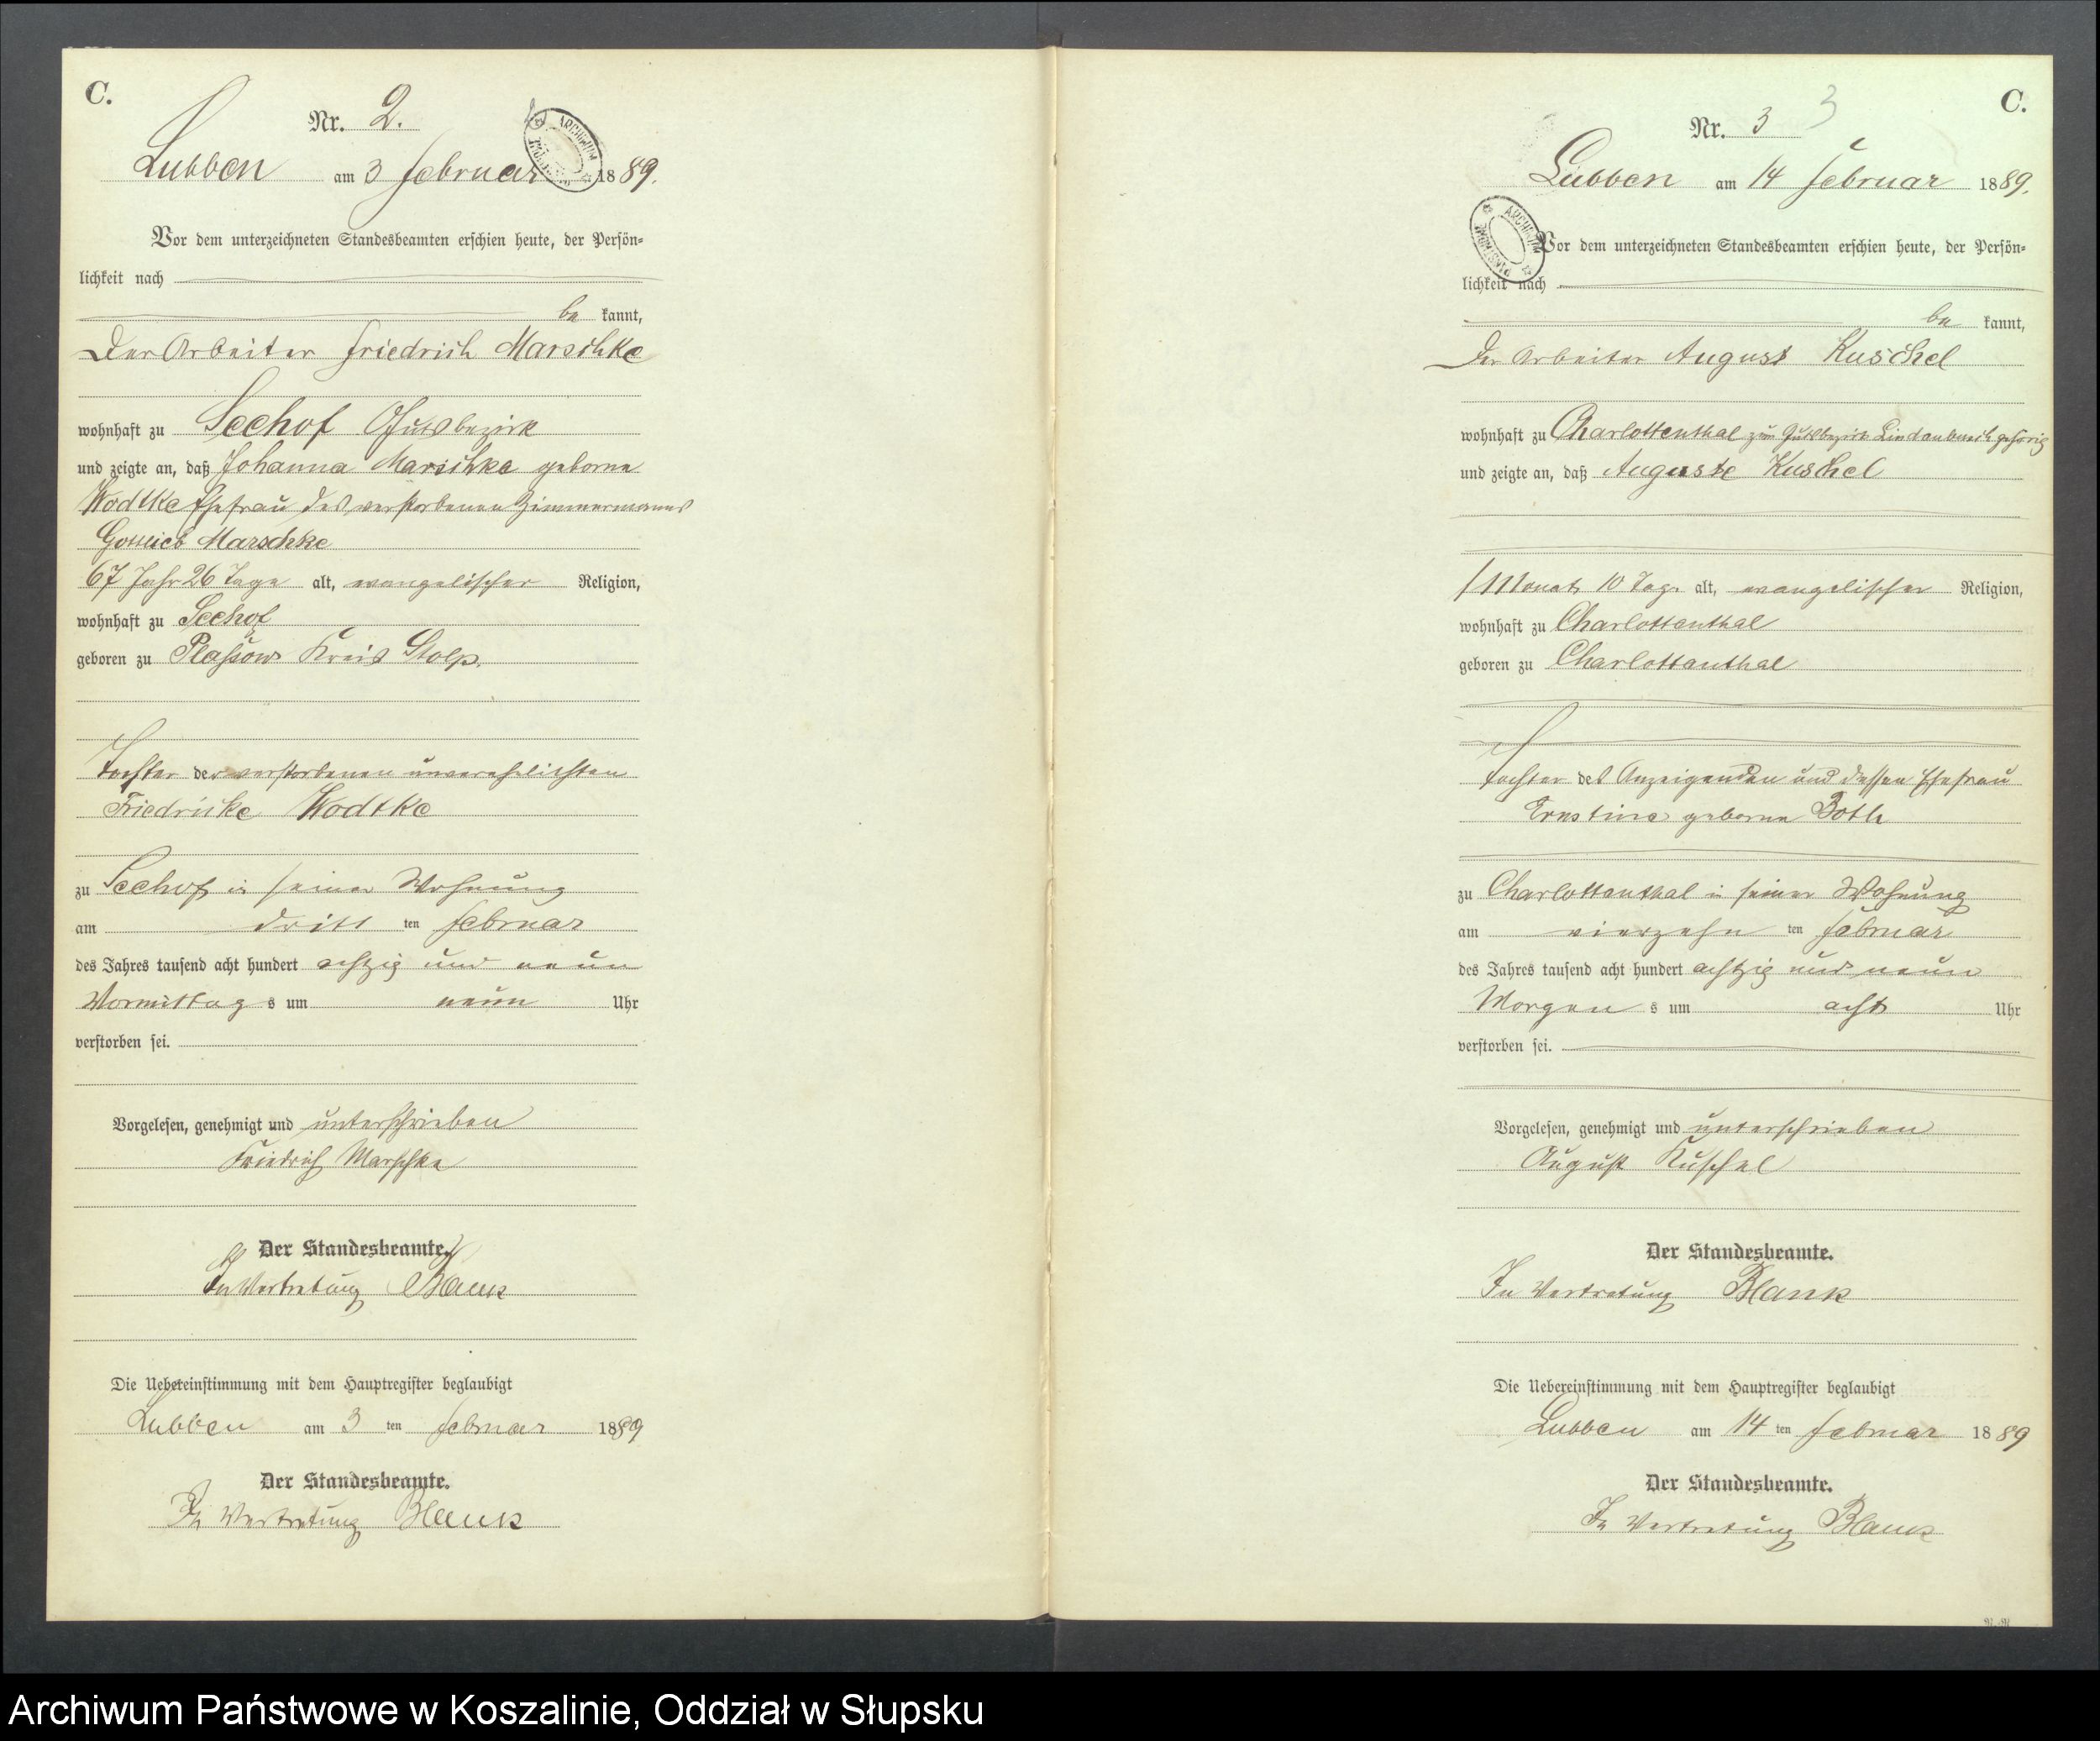 C.
Nr. 2.
Lubben am 3 Februar 1889.
Vor dem unterzeichneten Standesbeamten erschien heute, der Persön-
lichkeit nach
be kannt,
Der Arbeiter Friedrich Marschke
wohnhaft zu Seehof Gutsbezirk
und zeigte an, daß Johanna Marschke geborne
Wodtke Ehefrau des verstorbenen Zimmermanns
Gottlieb Marschke
67 Jahr 26 Tage alt, evangelischer Religion,
wohnhaft zu Seehof
geboren zu Plassow Kreis Stolp.
Tochter der verstorbenen unverehelichten
Friedricke Wodtke
zu Seehof in seiner Wohnung
am dritt ten Februar
des Jahres tausend acht hundert achtzig und neun
Vormittag s um neun Uhr
verstorben sei.
Vorgelesen, genehmigt und unterschrieben
Friedrich Marschke
Der Standesbeamte.
In Vertretung Blank
Die Uebereinstimmung mit dem Hauptregister beglaubigt
Lubben am 3 ten Februar 1889
Der Standesbeamte.
In Vertretung Blank
C.
Nr. 3 3
Lubben am 14 Februar 1889.
ARCHIWUM
Vor dem unterzeichneten Standesbeamten erschien heute, der Persön-
lichkeit nach
be kannt,
Der Arbeiter August Kuschel
wohnhaft zu Charlottenthal zum Gutsbezirk gehörig
und zeigte an, daß Auguste Kuschel
1 Monat 10 Tage alt, evangelischer Religion,
wohnhaft zu Charlottenthal
geboren zu Charlottenthal
Tochter des Anzeigenden und dessen Ehefrau
Ernstine geborne Both
zu Charlottenthal in seiner Wohnung
am vierzehn ten Februar
des Jahres tausend acht hundert achtzig und neun
Morgen s um acht Uhr
verstorben sei.
Vorgelesen, genehmigt und unterschrieben
August Kuschel
Der Standesbeamte.
In Vertretung Blank
Die Uebereinstimmung mit dem Hauptregister beglaubigt
Lubben am 14 ten Februar 1889
Der Standesbeamte.
In Vertretung Blank
Archiwum Państwowe w Koszalinie, Oddział w Słupsku